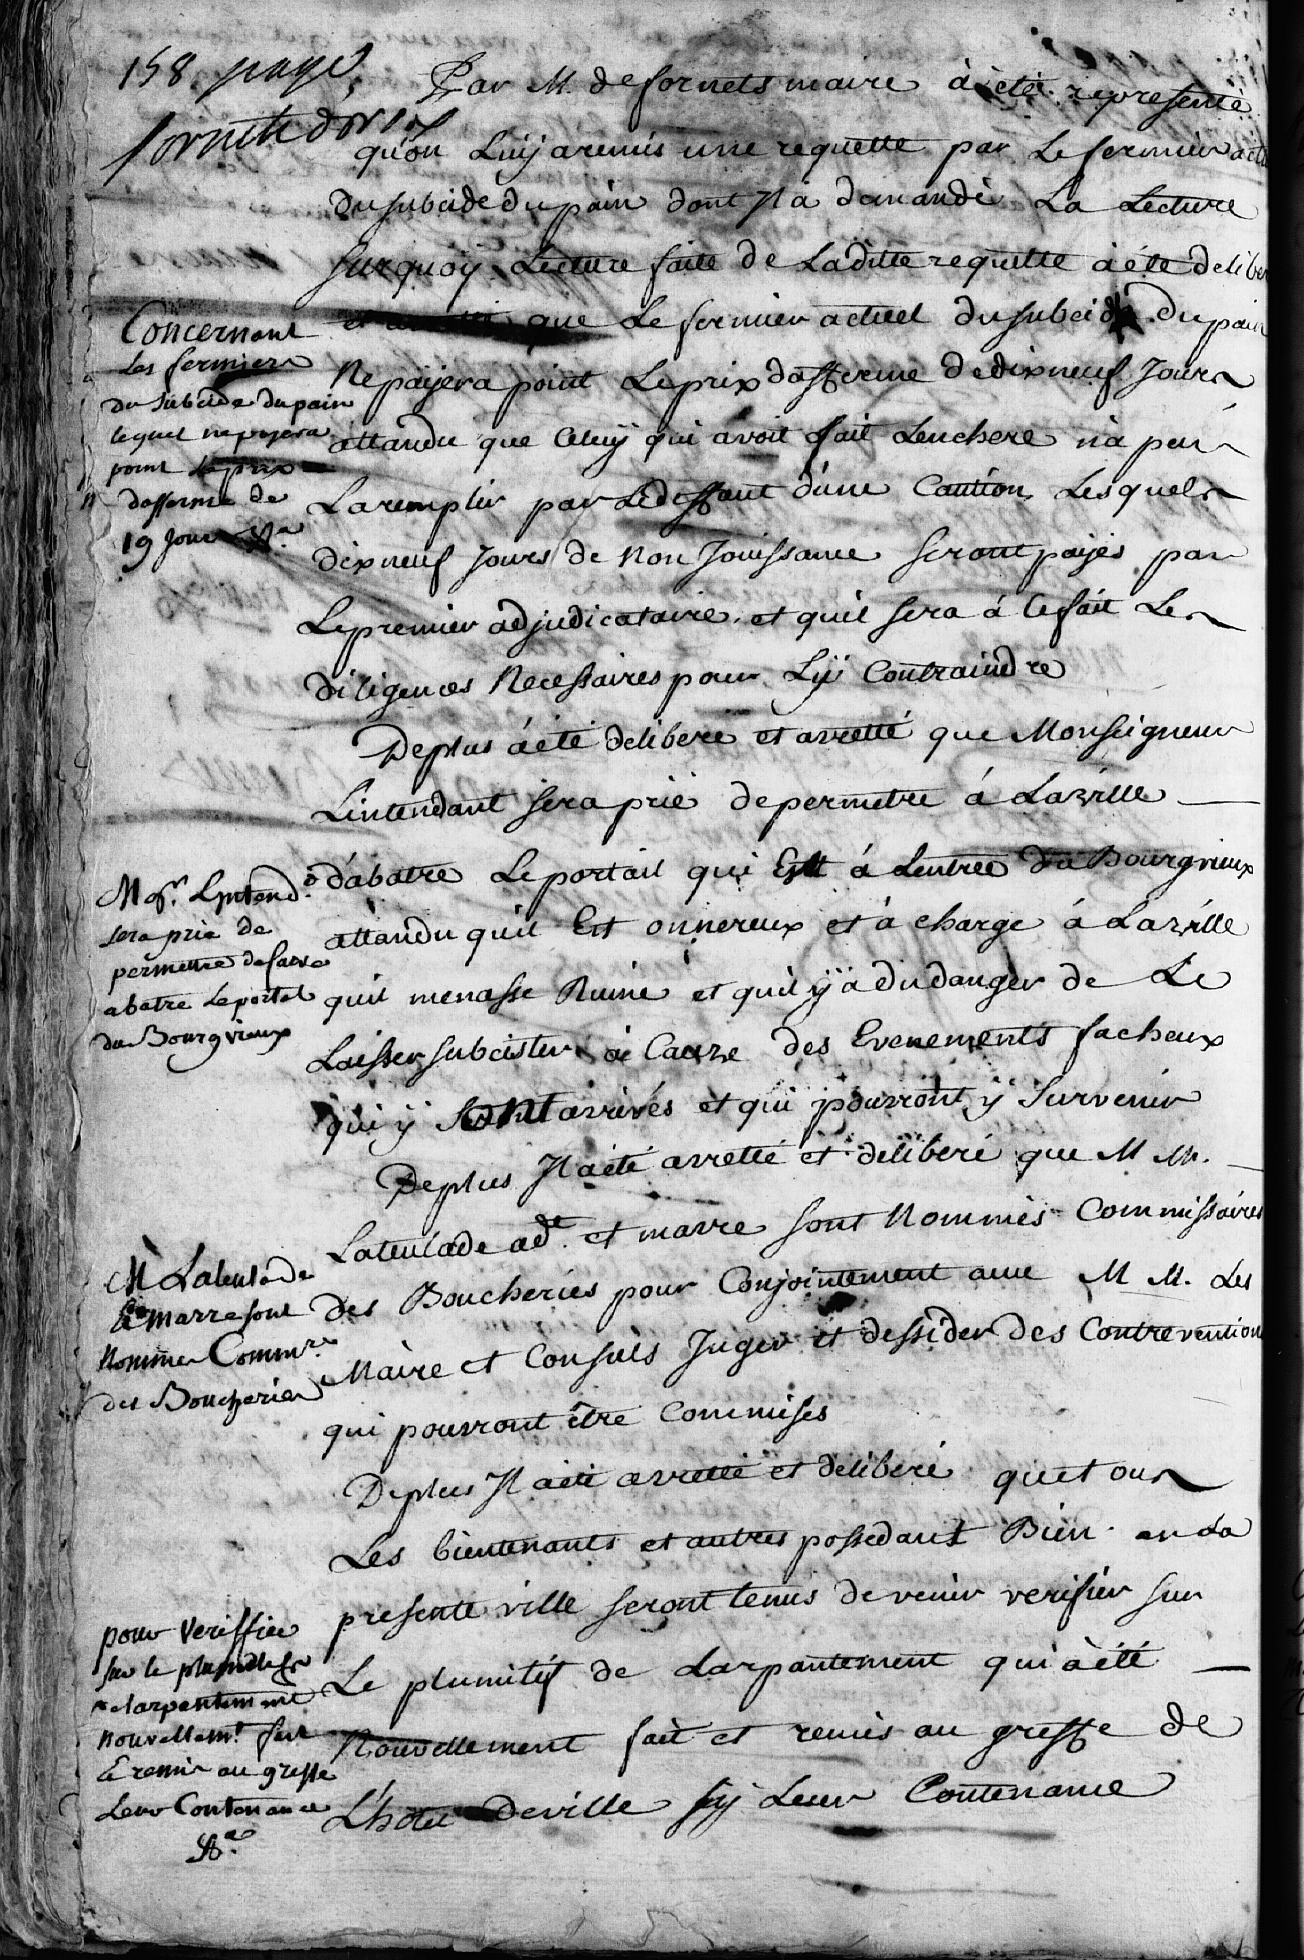 158 page
Par M. de fornets maire à èté representé
qu'on Luy a remis une requette par Le fermier actu
du subcide du pain dont Il a demandè La Lecture
Surquoÿ Lecture faite de Laditte requette à été delibe
que Le fermier actuel du subcide du pain
Ne païjera point Le prix d'afferme de dixneuf Jours
attandu que Celuÿ qui avoit fait Lenchere n'a peu
La remplir par Le deffaut d'une Caution, Lesquels
dixneuf Jours de Non Jouissance Seront païjés par
Le premier adjudicataire, et quil sera à Ce fait Les
diligences Necessaires pour Lÿ Contraindre
De plus à été deliberé et arretté que Monseigneur
Lintendant sera prié de permetre á La ville
d'abatre Le portail qui Est á Lentrée du Bourgvieux
attandu quil Est onnereux et à charge á La ville
quil menasse Ruine et quil ÿ a du danger de Le
Laisser subcister à Cause des Evenements facheux
qui ÿ sont arrivés et qui pourront ÿ Survenir
De plus Il a été arretté et deliberé que M M.
Lateulade ad.t et marre sont Nommés Commissaires
des Boucheries pour Conjointement avec M M. Les
Maire et Consuls Juger et dessider des Contrevention
qui pourront être Commises
De plus Il a été arretté et deliberé que tous
Les bientenants et autres possedant Bien en La
presente ville seront tenus de venir verifier sur
Le plumitif de Larpantement qui à été
Nouvellement fait et remis au greffe de
L'hotel de ville sÿ Leur Contenance
Concernent
Les fermiers
du subcide du pain
lequel ne payera
point le prix
dafferme de
19 Jours &a
Mgr. Lintend.
sera prié de
permettre de faire
abatre Le portal
du Bourgvieux
M Lateulade
& Marre sont
Nommes Commres
des Boucheries
pour Veriffier
sur le plumitif
Larpentement
Nouvellemt. fait
& remis au greffe
Leur Contenance
&a.